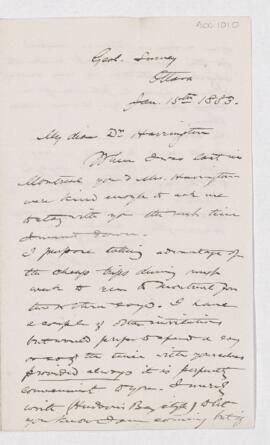 ACC-1010
Geol. Survey
Ottawa
Jan. 15th 1883.
My dear Dr Harrington
When I was last in
Montreal you & Mrs. Harrington
were kind enough to ask me
to stay with you the next time
I went down.
I purpose taking advantage of
the cheap trips during next
week to run to Montreal for
two or three days. I have
a couple of other invitations
but would prefer to spend a day
or so of the time with yourselves
provided always it is perfectly
convenient to you. I merely
write (Hudson's Bay style) to let
you know I am coming but if